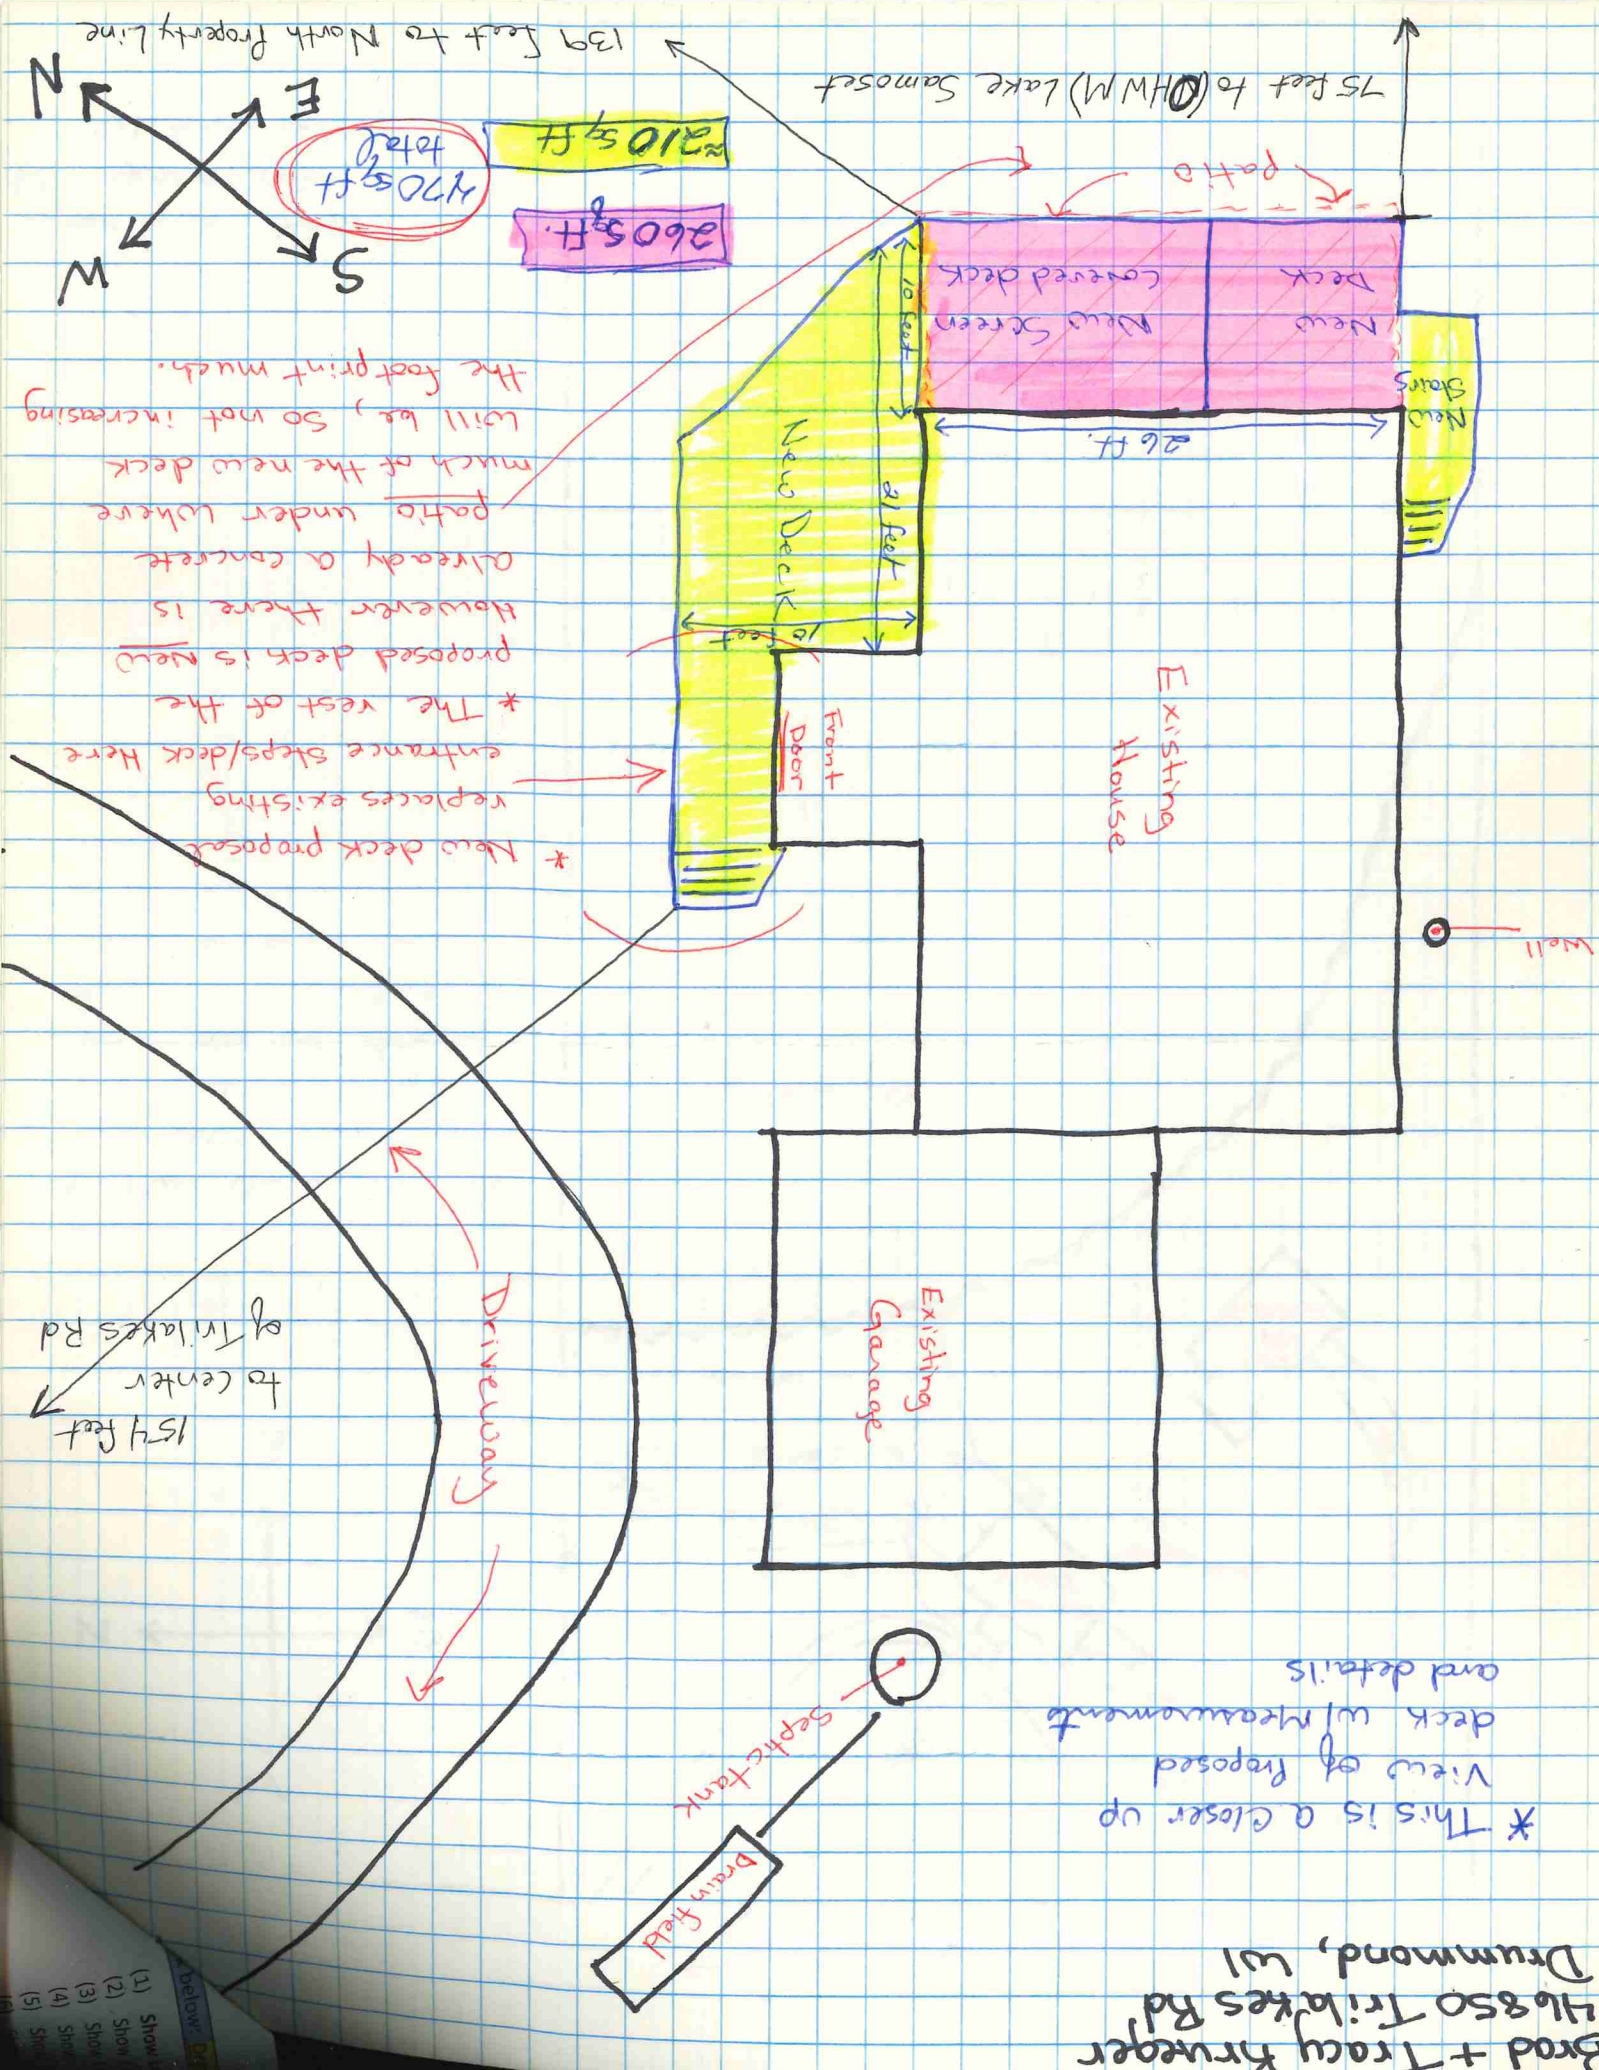 Brad + Tracy Krueger
46850 Trilakes Rd
Drummond, WI
* This is a closer up
View of Proposed
deck w/ Measurements
and details
Drain field
Septic tank
Existing
Garage
Driveway
154 feet
to center
of Trilakes Rd
Well
Existing
House
Front
Door
* New deck proposal
replaces existing
entrance steps/deck Here
* The rest of the
proposed deck is New
However there is
already a concrete
patio under where
much of the new deck
will be, so not increasing
the footprint much.
10 feet
21 feet
New Deck
26 ft.
10 feet
New
Stairs
New
Deck
New Screen
Covered deck
patio
260 sq ft.
≈210 sq ft
470 sq ft
total
S
W
E
N
75 feet to (OHWM) Lake Samoset
139 feet to North Property Line
below:
(1) Show
(2) Show
(3) Show
(4) Show
(5) Show